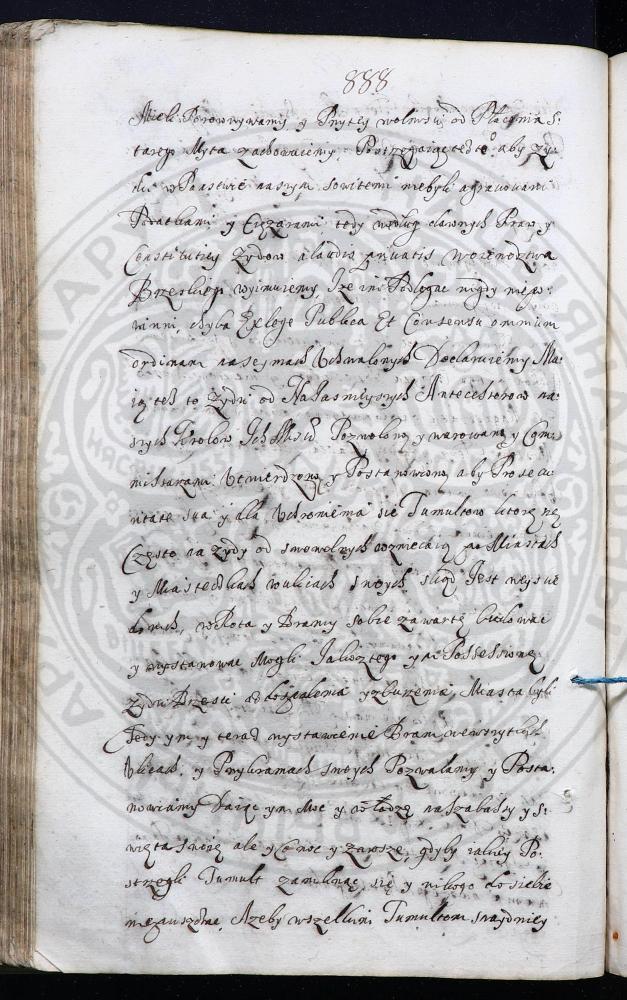 888
Mieli Porownywamy y Przytey wolnosci od Płacenia S-
tarego Myta zachowuiemy Postrzegaiąc też to aby zy-
dzi w Panstwie naszym sowitemi niebyli agrauowani
Podatkami y Ciężarami tedy według dawnych Praw y
Constitucij Zydow a laudis priuatis Woiewodztwa
Brzeskiego wyimuiemy Iże im Podlegac nigdy niepo-
winni, chyba Ex lege Publica Et Consensu omnium
ordinum na seymach Vchwalonych Declaruiemy Ma-
ią tesz to Zydzi od Naiasnieyszych Antecessorow na-
szych Krolow Ich Msciow Pozwolono y warowano y Com-
missarzami Vtwierdzono y Postanowiono aby Pro secu-
ritate sua y dla Vchronienia się Tumultow ktore się
Często na zydy od swowolnych wzniecaią po Miastach
y Miasteczkach w ulicach swoych skąd Iest weyscie
do nich, wrota y Bramy sobie zawarte budowac
y wystanowac Mogli Iakosz tego y in Possessione
zydzi Brzesci do spalenia y zburzenia Miasta byli
Tedy ym y teraz wystawienie Bram wewszytkich
Vlicach y Przykramach swoych Pozwalamy y Posta-
nowiamy Daiąc ym Moc y władzę na szabassy y s-
więta swoie ale y w noc y zawsze, gdyby iakiey Po-
strzegli Tumult zamknąc się y nikogo do siebie
niepuszczac, Azeby wszelkim Tumultom snadniey